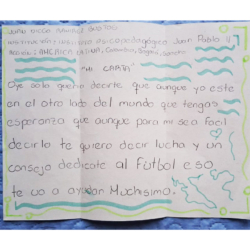 JUAN DIEGO RAMIREZ BUSTOS
INSTITUCIÓN: INSTITUTO psicopedagógico Juan Pablo II
NACION: AMÉRICA LATINA, Colombia, Bogotá,
"MI CARTA"
Oye solo quería decirte que aunque yo este
en el otro lado del mundo que tengas
esperanza que aunque para mi sea facil
decirlo te quiero decir lucha y un
consejo dedicate al fútbol eso
te va a ayudar Muchisimo.